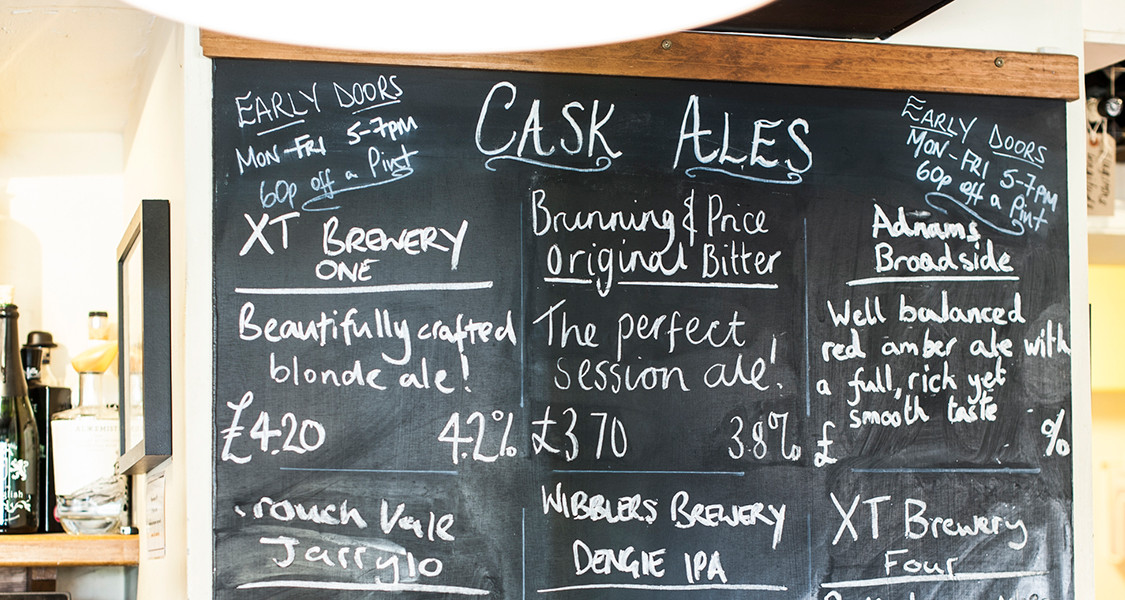 EARLY DOORS
MON-FRI 5-7PM
60p off a Pint
CASK ALES
EARLY DOORS
MON-FRI 5-7PM
60p off a Pint
XT BREWERY
ONE
Beautifully crafted
blonde ale!
£4.20 4.2%
Brunning & Price
Original Bitter
The perfect
session ale!
£3.70 3.8%
Adnams
Broadside
Well balanced
red amber ale with
a full, rich yet
smooth taste
£ %
rouch Vale
Jarrylo
WIBBLERS BREWERY
DENGIE IPA
XT Brewery
Four